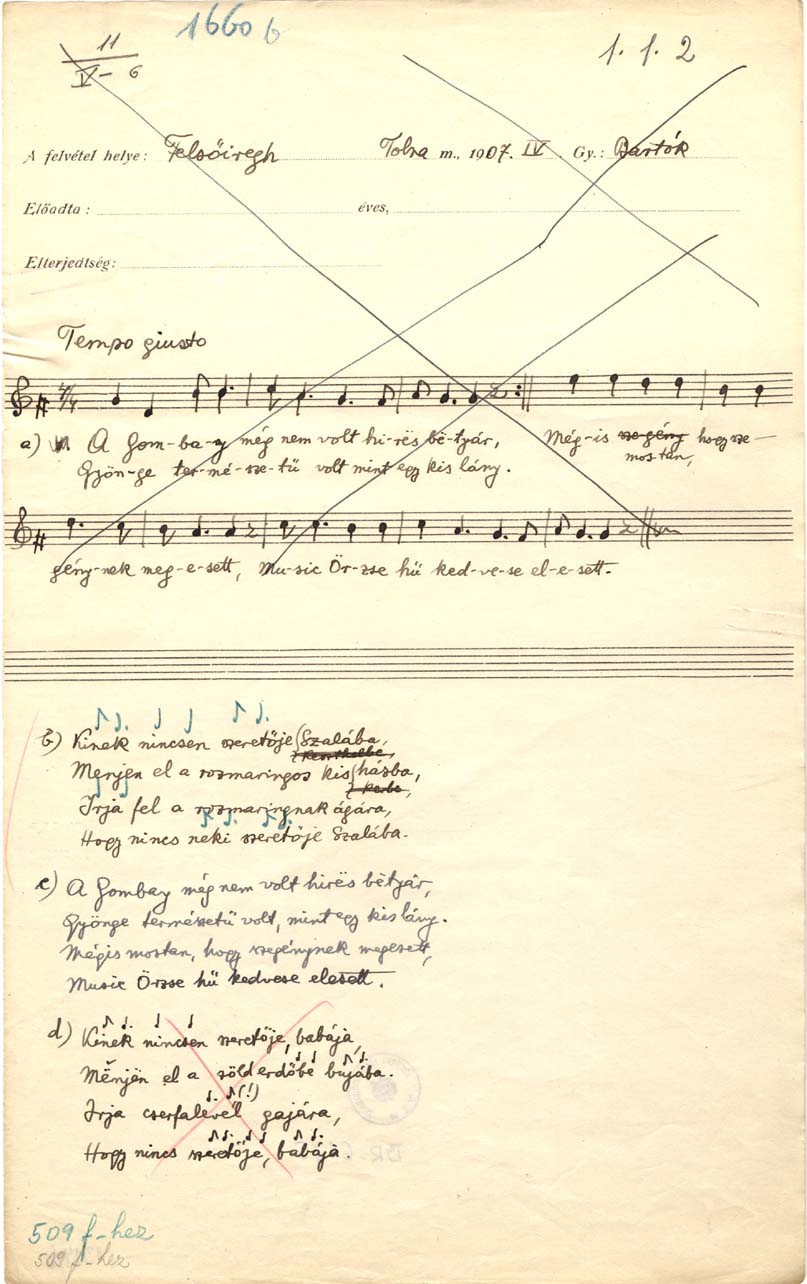 1660 b
11
IV - 6
1. 1. 2
A felvétel helye: Felsőiregh Tolna m., 1907. IV. Gy.: Bartók
Előadta: éves,
Elterjedtség:
Tempo giusto
4/4
a) A Gom-ba-y még nem volt hi-rës bë-tyár, Még-is szegény hogy sze-
mos-tan,
Gyön-ge ter-mé-sze-tű volt mint egy kis lány.
gény-nek meg-e-sett, Mu-sic Ör-zse hű ked-ve-se el-e-sett.
b) Kinek nincsen szeretője Szalába,
Menjen el a rozmaringos kis házba,
Kerbe,
Irja fel a rozmaringnak ágára,
Hogy nincs neki szeretője Szalába.
c) A Gombay még nem volt hirës bëtyár,
Gyönge természetű volt, mint egy kis lány.
Mégis mostan, hogy szegénynek megesett,
Music Örzse hű kedvese elesett.
d) Kinek nincsen szeretője, babája,
Mënjën el a zöld erdőbe bujába.
Irja cserfalevél gajára, (!)
Hogy nincs szeretője, babája.
509 f-hez
509 f-hez